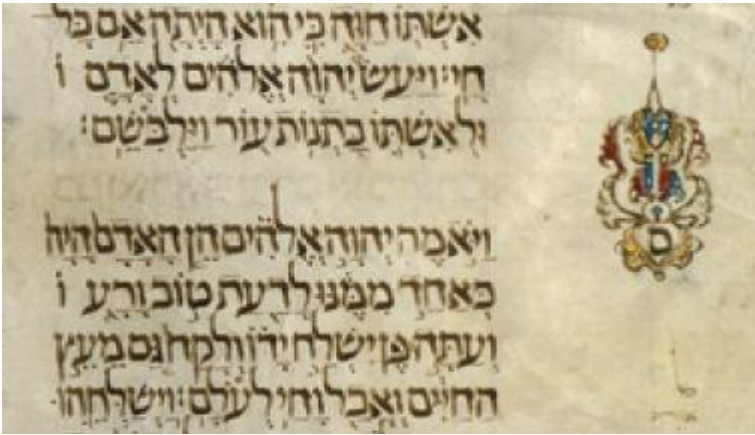 אִשְׁתּוֹ חַוָּה כִּי הִוא הָיְתָה אֵם כָּל
חָי׃ וַיַּעַשׂ יְהוָה אֱלֹהִים לְאָדָם ו
וּלְאִשְׁתּוֹ כָּתְנוֹת עוֹר וַיַּלְבִּשֵׁם׃
ס
וַיֹּאמֶר יְהוָה אֱלֹהִים הֵן הָאָדָם הָיָה
כְּאַחַד מִמֶּנּוּ לָדַעַת טוֹב וָרָע ו
וְעַתָּה פֶּן יִשְׁלַח יָדוֹ וְלָקַח גַּם מֵעֵץ
הַחַיִּים וְאָכַל וָחַי לְעֹלָם׃ וַיְשַׁלְּחֵהוּ